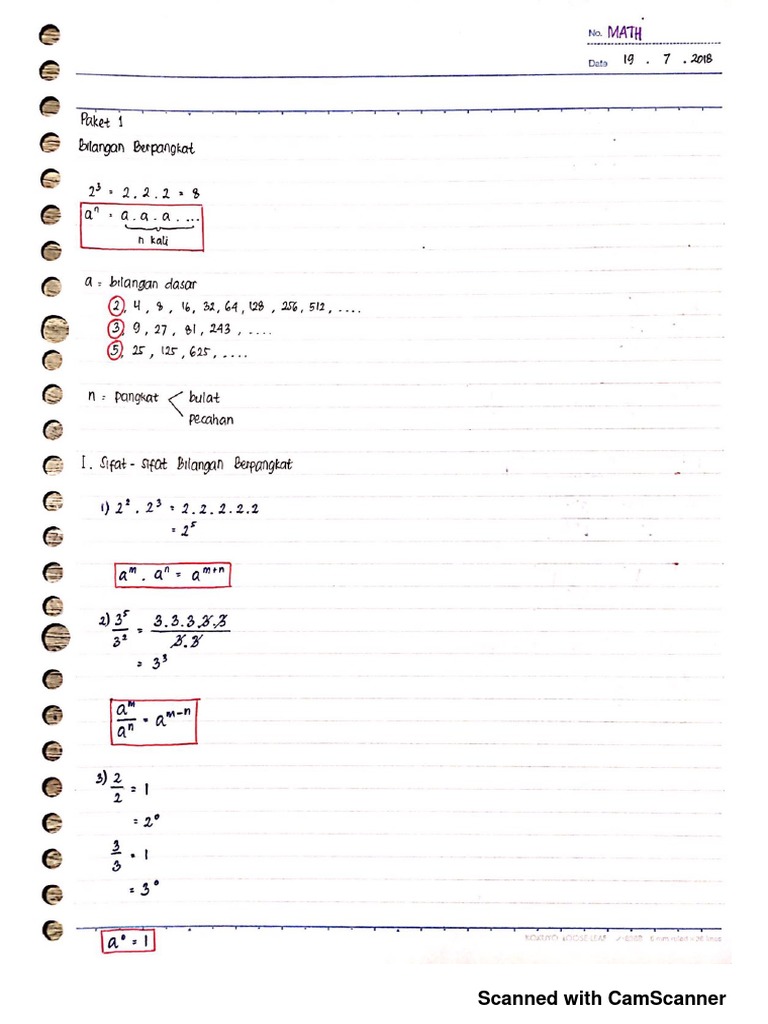 No. MATH
Date 19 . 7 . 2018
Paket 1
Bilangan Berpangkat
2³ = 2 . 2 . 2 = 8
aⁿ = a . a . a . ...
n kali
a = bilangan dasar
2, 4, 8, 16, 32, 64, 128, 256, 512, ....
3, 9, 27, 81, 243, ....
5, 25, 125, 625, ....
n = pangkat < bulat
pecahan
I. Sifat - sifat Bilangan Berpangkat
1) 2² . 2³ = 2 . 2 . 2 . 2 . 2
= 2⁵
aᵐ . aⁿ = aᵐ⁺ⁿ
2) 3⁵/3² = 3 . 3 . 3 . 3 . 3 / 3 . 3
= 3³
aᵐ/aⁿ = aᵐ⁻ⁿ
3) 2/2 = 1
= 2⁰
3/3 = 1
= 3⁰
a⁰ = 1
KOKUYO LOOSE LEAF
Scanned with CamScanner